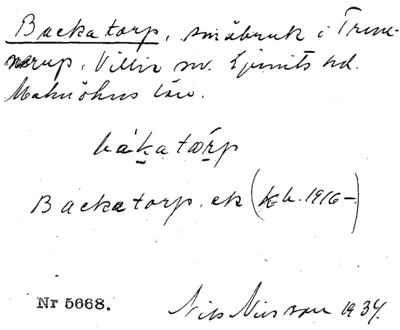 Backatorp, småbruk i Trune-
nerup, Villie sn. Ljunits hd.
Malmöhus län.
bákatærp
Backatorp, ek (kb. 1916–)
Nr 5668.
Nils Nilsson 1934.